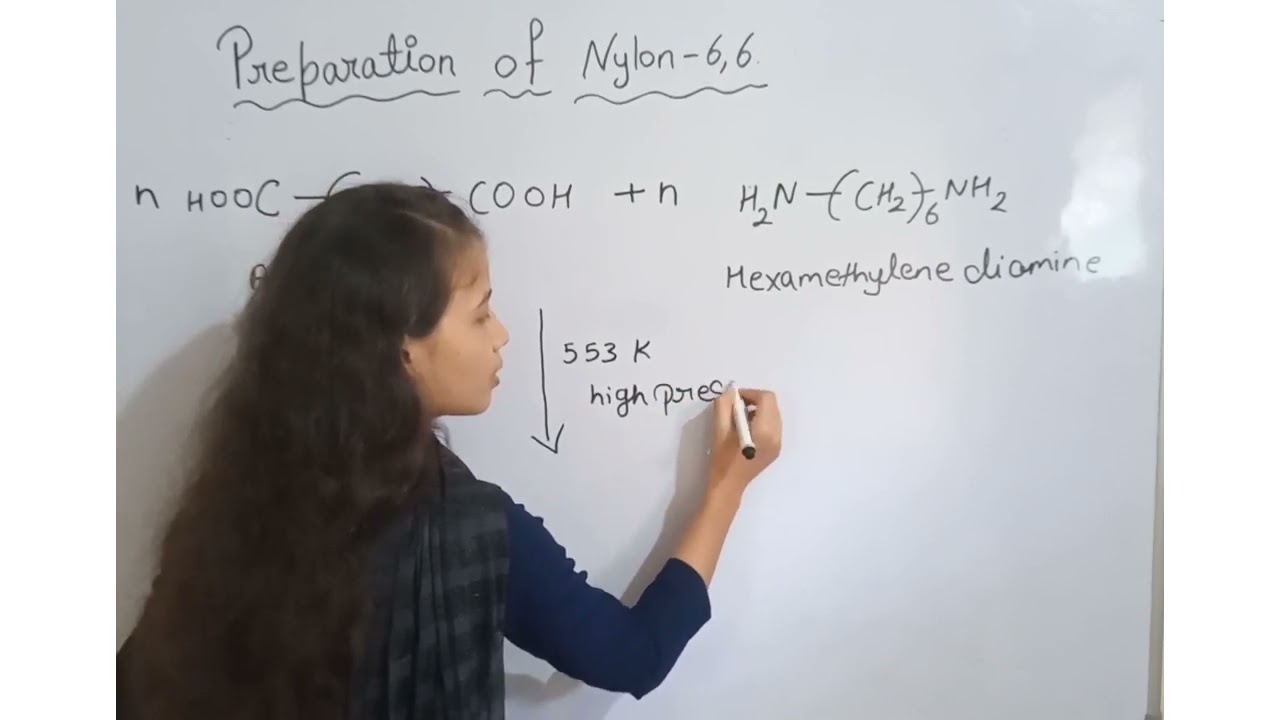 Preparation of Nylon-6,6.
n HOOC-( )-COOH + n H₂N-(CH₂)₆NH₂
Hexamethylene diamine
553 K
high pres